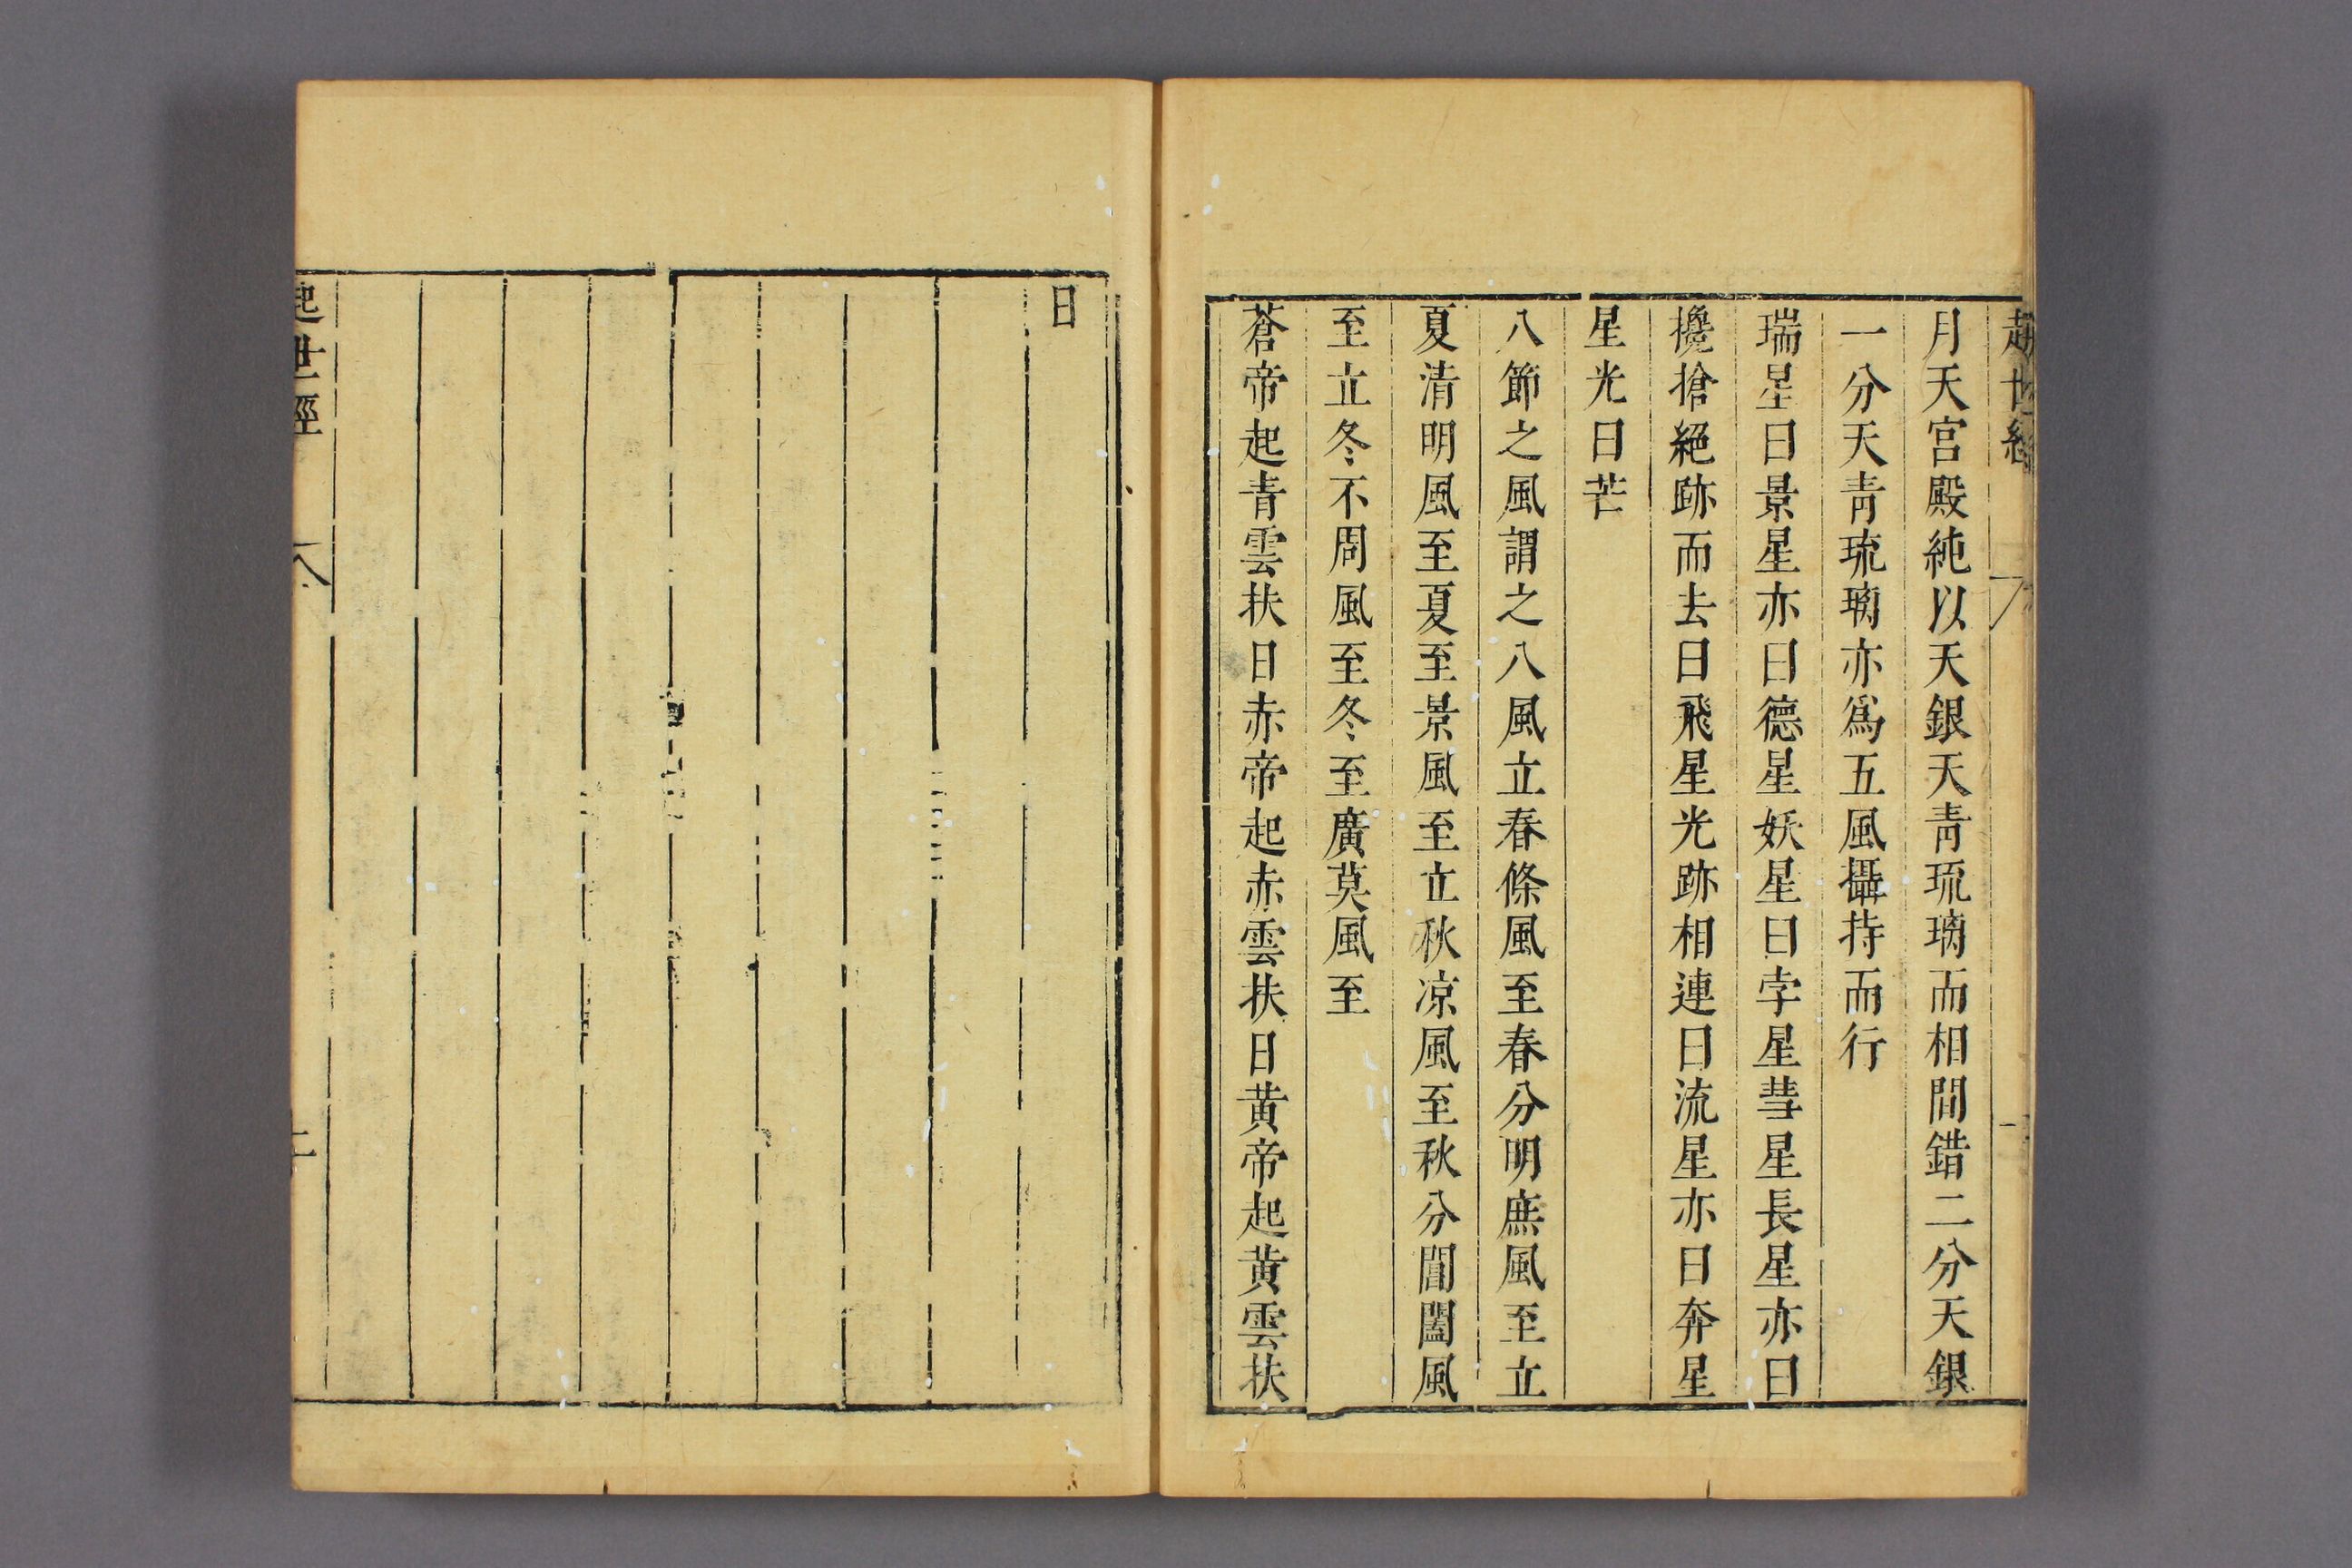 起世經
一
月天宮殿純以天銀天青琉璃而相間錯二分天銀
一分天青琉璃亦爲五風攝持而行
瑞星曰景星亦曰德星妖星曰孛星彗星長星亦曰
攙搶絕跡而去曰飛星光跡相連曰流星亦曰奔星
星光曰芒
八節之風謂之八風立春條風至春分明庶風至立
夏清明風至夏至景風至立秋凉風至秋分閶闔風
至立冬不周風至冬至廣莫風至
蒼帝起青雲扶日赤帝起赤雲扶日黄帝起黄雲扶
日
起世經